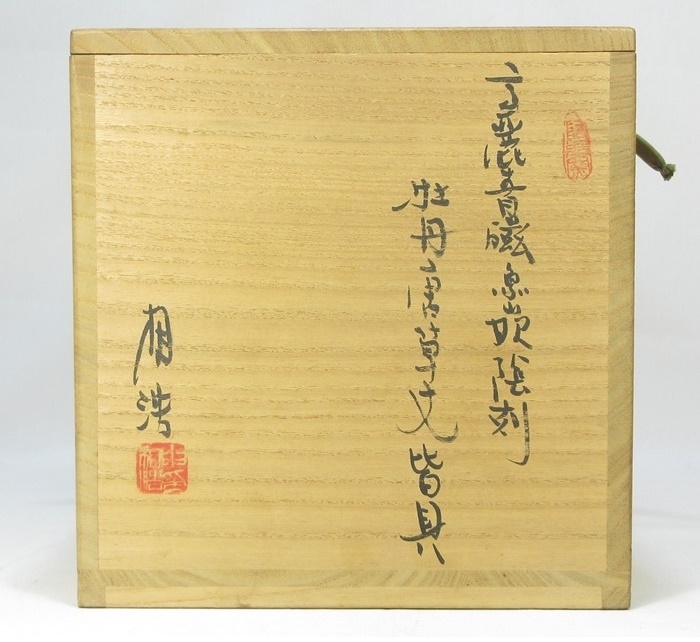 高麗青磁象嵌陰刻
牡丹唐草文皆具
相浩